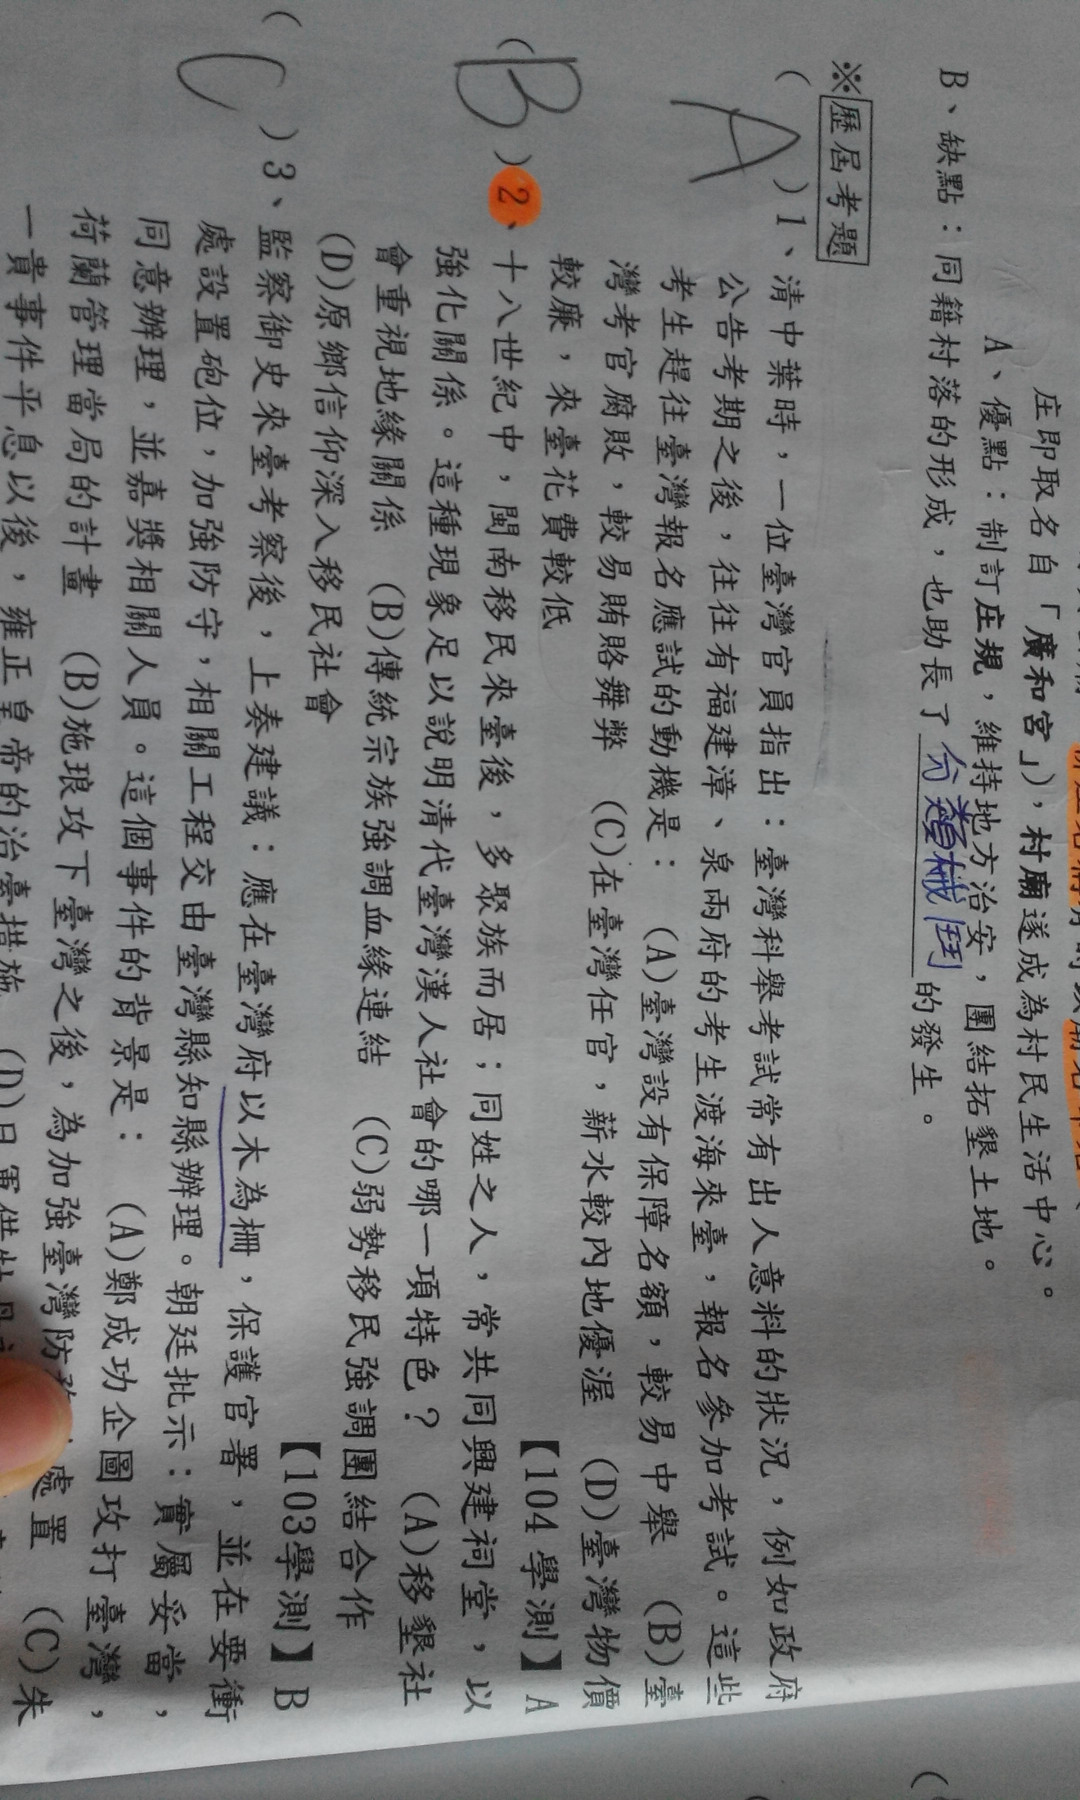 庄即取名自「廣和宮」），村廟遂成為村民生活中心。
A、優點：制訂庄規，維持地方治安，團結拓墾土地。
B、缺點：同籍村落的形成，也助長了分類械鬥的發生。
※歷屆考題
（A）1、清中葉時，一位臺灣官員指出：臺灣科舉考試常有出人意料的狀況，例如政府
公告考期之後，往往有福建漳、泉兩府的考生渡海來臺，報名參加考試。這些
考生趕往臺灣報名應試的動機是： (A)臺灣設有保障名額，較易中舉 (B)臺
灣考官腐敗，較易賄賂舞弊 (C)在臺灣任官，薪水較內地優渥 (D)臺灣物價
較廉，來臺花費較低 【104學測】A
（B）2、十八世紀中，閩南移民來臺後，多聚族而居；同姓之人，常共同興建祠堂，以
強化關係。這種現象足以說明清代臺灣漢人社會的哪一項特色？ (A)移墾社
會重視地緣關係 (B)傳統宗族強調血緣連結 (C)弱勢移民強調團結合作
(D)原鄉信仰深入移民社會 【103學測】B
（C）3、監察御史來臺考察後，上奏建議：應在臺灣府以木為柵，保護官署，並在要衝
處設置砲位，加強防守，相關工程交由臺灣縣知縣辦理。朝廷批示：實屬妥當，
同意辦理，並嘉獎相關人員。這個事件的背景是： (A)鄭成功企圖攻打臺灣，
荷蘭管理當局的計畫 (B)施琅攻下臺灣之後，為加強臺灣防務 處置 (C)朱
一貴事件平息以後，雍正皇帝的治臺措施 (D)日軍